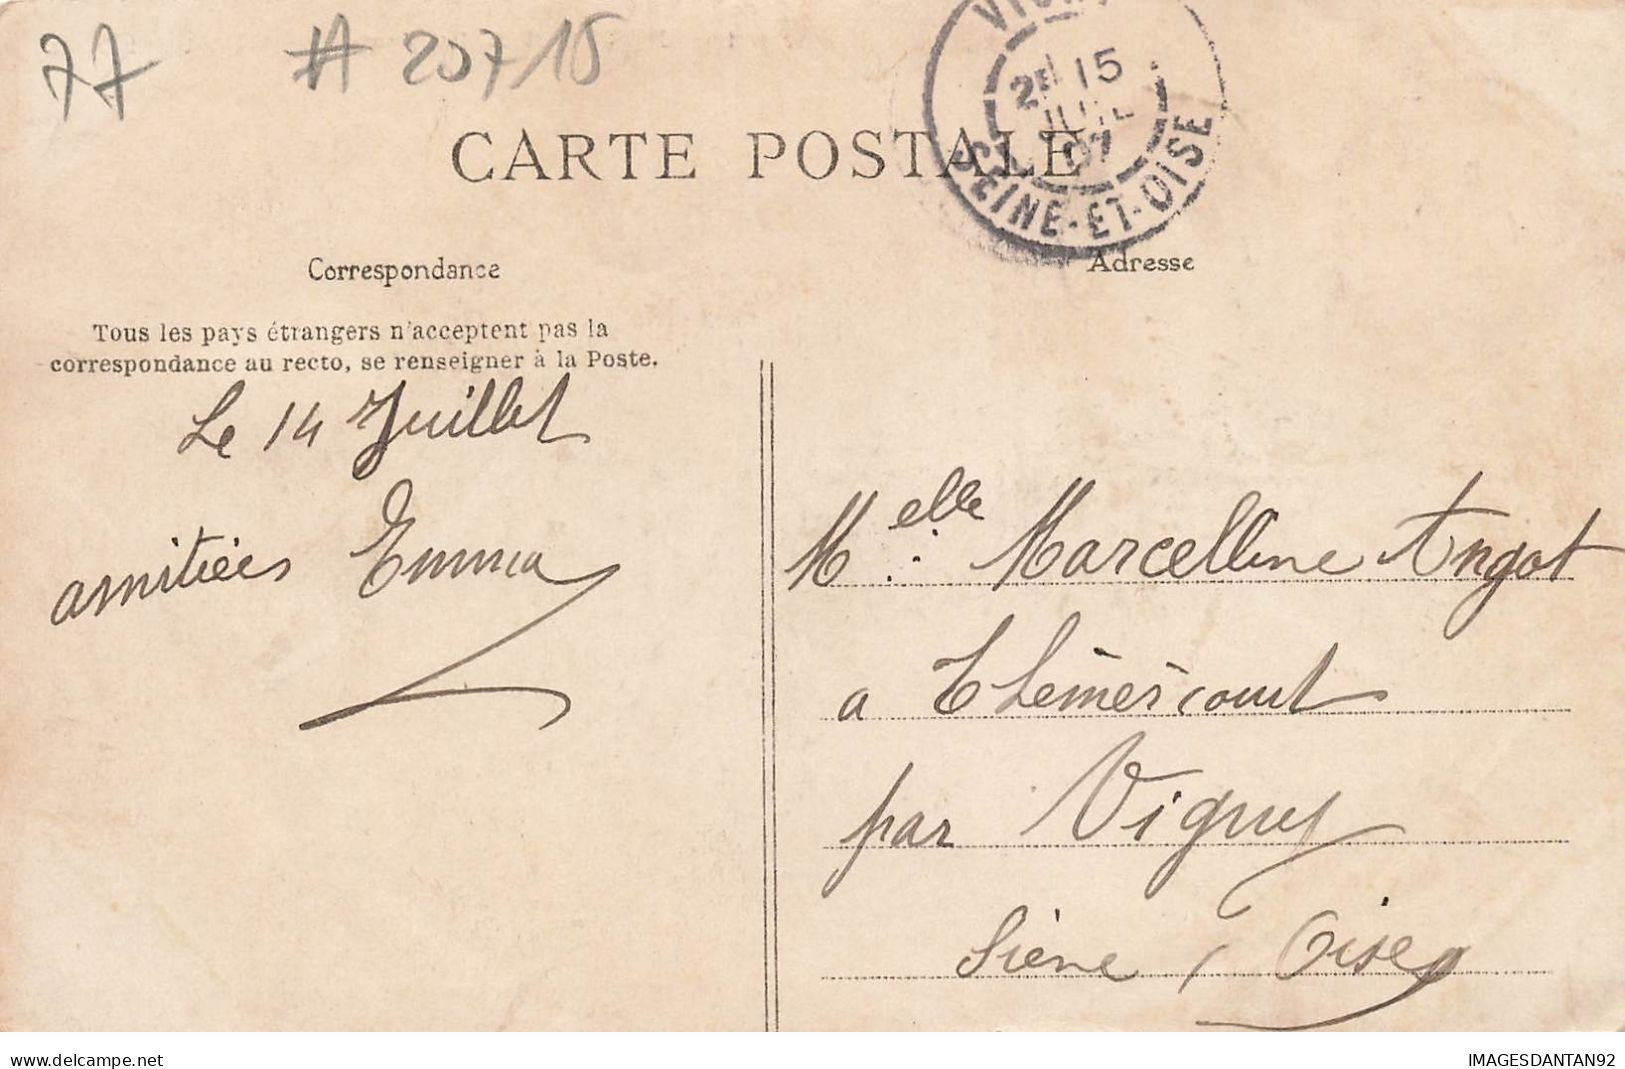 77 # 207 15
2E 15
07
SEINE-ET-OISE
CARTE POSTALE
Correspondance
Adresse
Tous les pays étrangers n'acceptent pas la
correspondance au recto, se renseigner à la Poste.
Le 14 Juillet
amitiées Emma
Melle Marcelline Angot
a Thémèricourt
par Vigny
Siène, Oise
www.delcampe.net
IMAGESDANTAN92